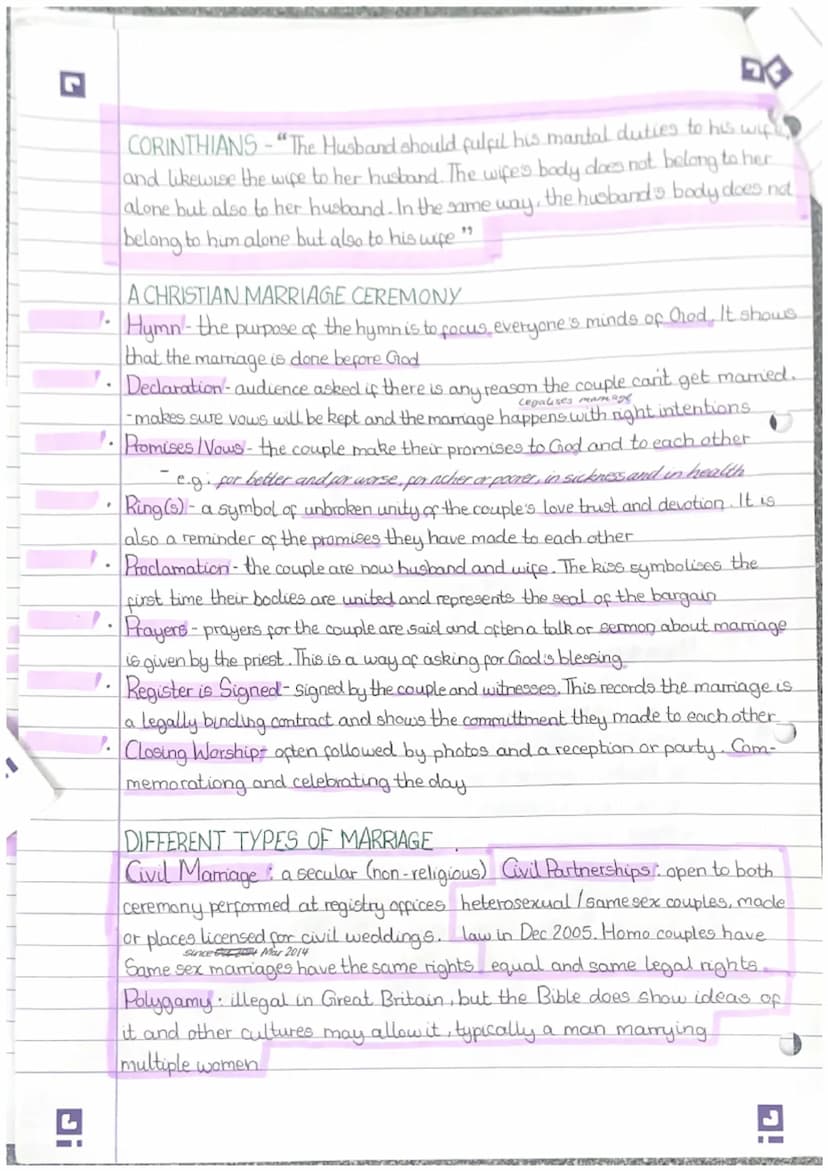 CORINTHIANS - "The Husband should fulfil his marital duties to his wife,
and likewise the wife to her husband. The wife's body does not belong to her
alone but also to her husband. In the same way, the husband's body does not
belong to him alone but also to his wife"
A CHRISTIAN MARRIAGE CEREMONY
Hymn - the purpose of the hymn is to focus everyone's minds of God. It shows
that the marriage is done before God
Declaration - audience asked if there is any reason the couple can't get married.
legalises marriage
- makes sure vows will be kept and the marriage happens with right intentions
Promises/Vows - the couple make their promises to God and to each other
- e.g: for better and for worse, for richer or poorer, in sickness and in health
Ring(s) - a symbol of unbroken unity of the couple's love trust and devotion. It is
also a reminder of the promises they have made to each other
Proclamation - the couple are now husband and wife. The kiss symbolises the
first time their bodies are united and represents the seal of the bargain
Prayers - prayers for the couple are said and often a talk or sermon about marriage
is given by the priest. This is a way of asking for God's blessing
Register is Signed - signed by the couple and witnesses. This records the marriage is
a legally binding contract and shows the committment they made to each other
Closing Worship - often followed by photos and a reception or party. Com-
memorationg and celebrating the day
DIFFERENT TYPES OF MARRIAGE
Civil Marriage: a secular (non-religious)
ceremony performed at registry offices
or places licensed for civil weddings.
since Mar 2014
Same sex marriages have the same rights
Civil Partnerships: open to both
heterosexual/same sex couples, made
law in Dec 2005. Homo couples have
equal and same legal rights.
Polygamy: illegal in Great Britain, but the Bible does show ideas of
it and other cultures may allow it, typically a man marrying
multiple women